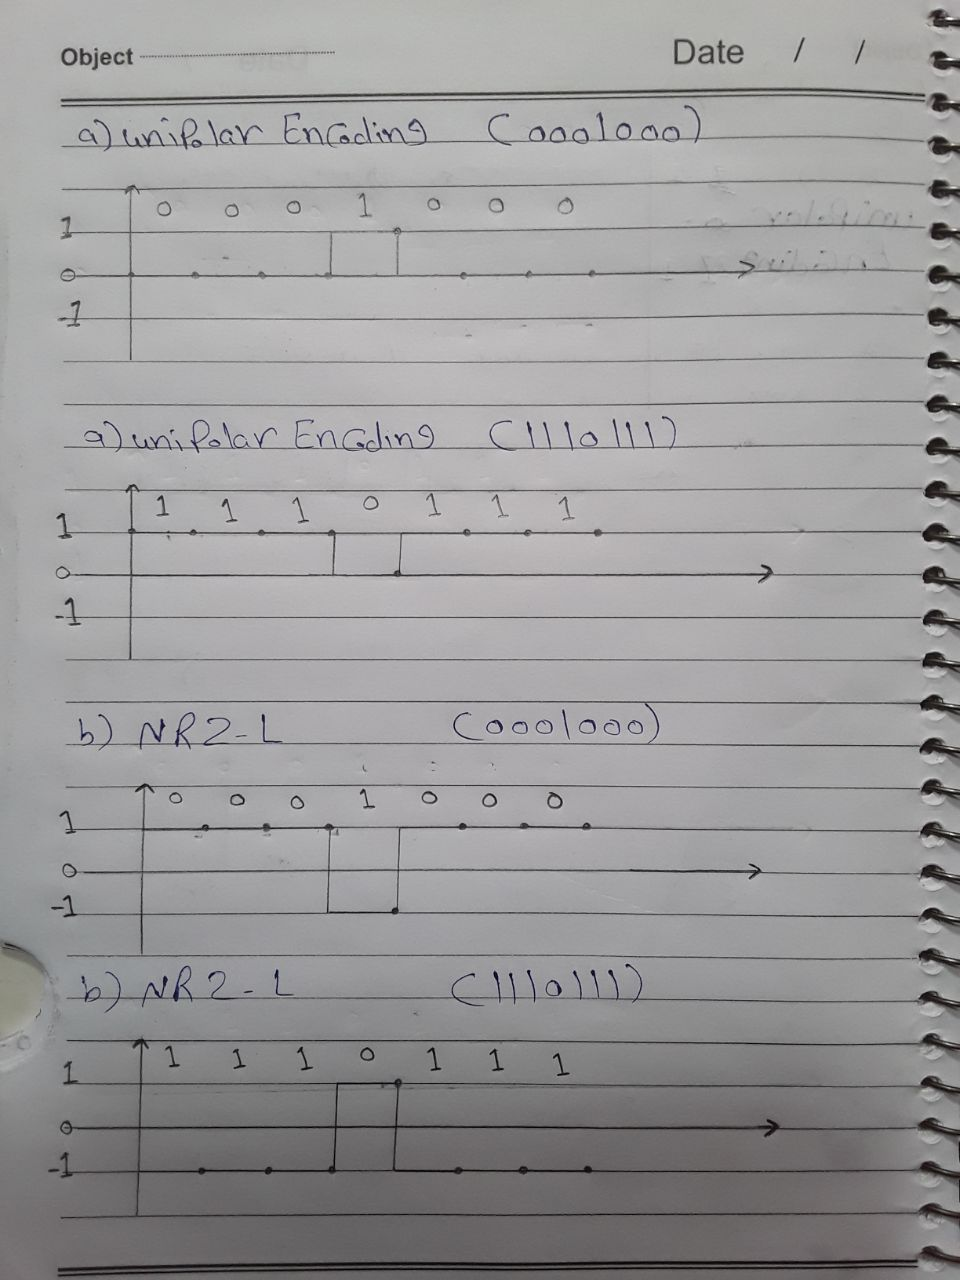 Object
Date / /
a) unipolar Encoding (0001000)
0 0 0 1 0 0 0
1
0
-1
a) unipolar Encoding (1110111)
1 1 1 0 1 1 1
1
0
-1
b) NRZ-L (0001000)
0 0 0 1 0 0 0
1
0
-1
b) NRZ-L (1110111)
1 1 1 0 1 1 1
1
0
-1